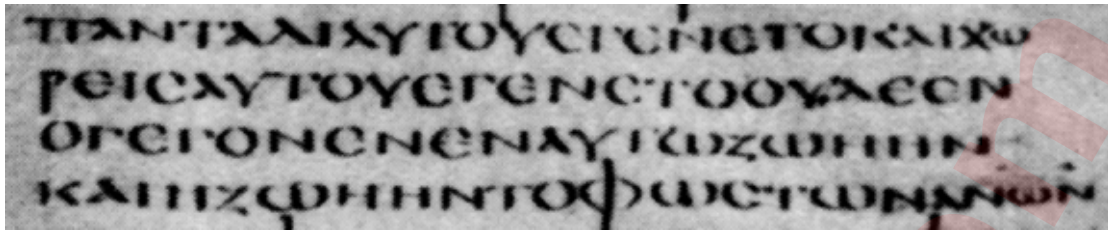 ΠΑΝΤΑΔΙΑΥΤΟΥΕΓΕΝΕΤΟΚΑΙΧΩ
ΡΕΙΣΑΥΤΟΥΕΓΕΝΕΤΟΟΥΔΕΕΝ
ΟΓΕΓΟΝΕΝΕΝΑΥΤΩΖΩΗΗΝ
ΚΑΙΗΖΩΗΗΝΤΟΦΩΣΤΩΝΑΝΩΝ